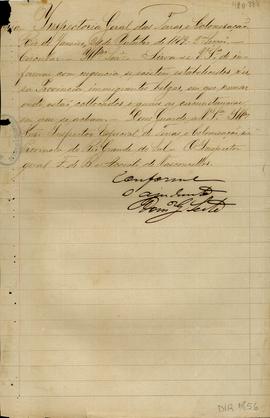 Inspectoria Geral das Terras e Colonisação
Rio de Janeiro de Outubro de
Circular Sirva-se V. Sª de in-
formar com urgencia se existem estabelecidos n'es-
sa Provincia immigrantes belgas, em que numero
onde estão collocados e quaes as circumstancias
em que se acham. Deus Guarde a V. Sª
Inspector Especial de Terras e Colonisação na
Provincia do Rio Grande do Sul. O Inspector
geral F. de B. e Accioli de Vasconcellos.
Conforme
O ajudante
DIR 1856